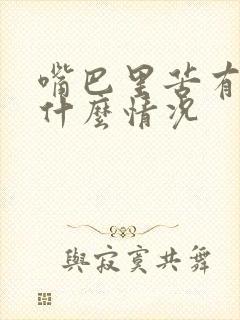 嘴巴里苦有
什麼情况
與寂寞共舞